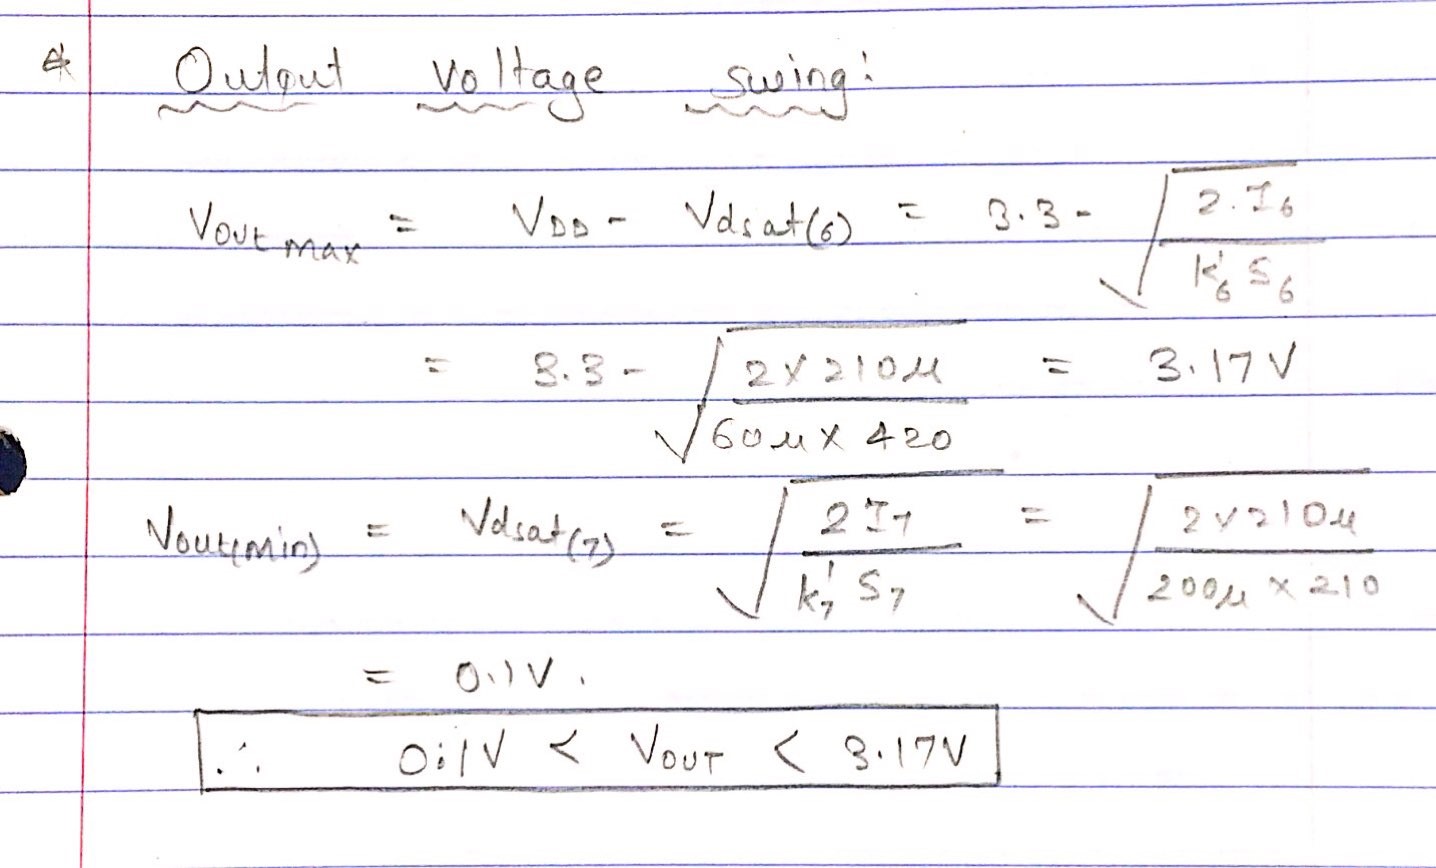 * Output voltage swing:
Vout max = VDD - Vdsat(6) = 3.3 - √(2.I6 / k'6 S6)
= 3.3 - √(2 x 210μ / 60μ x 420) = 3.17V
Vout(min) = Vdsat(7) = √(2I7 / k'7 S7) = √(2x210μ / 200μ x 210)
= 0.1V.
∴ 0.1V < VOUT < 3.17V